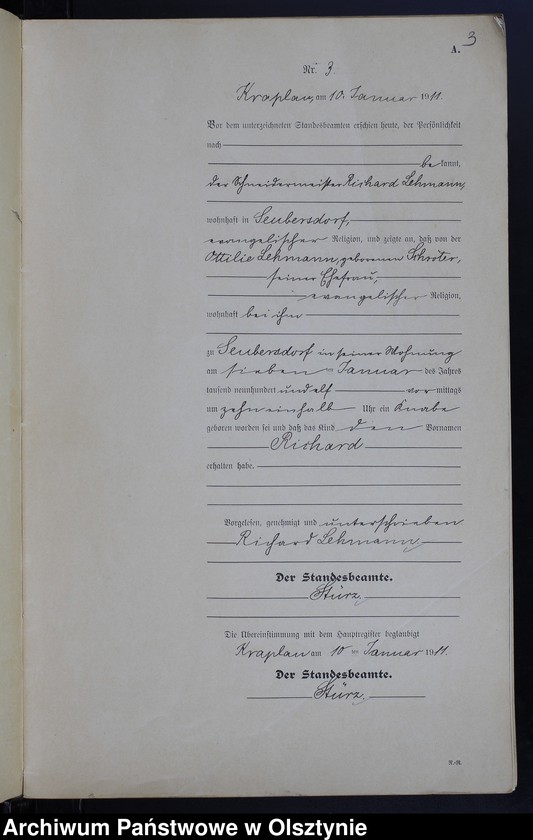 3
A.
Nr. 3
Kraplau, am 10. Januar 1911.
Vor dem unterzeichneten Standesbeamten erschien heute, der Persönlichkeit
nach
be kannt,
der Schneidermeister Richard Lehmann,
wohnhaft in Seubersdorf,
evangelischer Religion, und zeigte an, daß von der
Ottilie Lehmann, geborenen Schröter,
seiner Ehefrau,
evangelischer Religion,
wohnhaft bei ihm
zu Seubersdorf in seiner Wohnung
am sieben ten Januar des Jahres
tausend neunhundert und elf vor mittags
um zehn einhalb Uhr ein Knabe
geboren worden sei und daß das Kind den Vornamen
Richard
erhalten habe.
Vorgelesen, genehmigt und unterschrieben
Richard Lehmann.
Der Standesbeamte.
Stürz.
Die Übereinstimmung mit dem Hauptregister beglaubigt
Kraplau am 10 ten Januar 1911.
Der Standesbeamte.
Stürz.
Archiwum Państwowe w Olsztynie